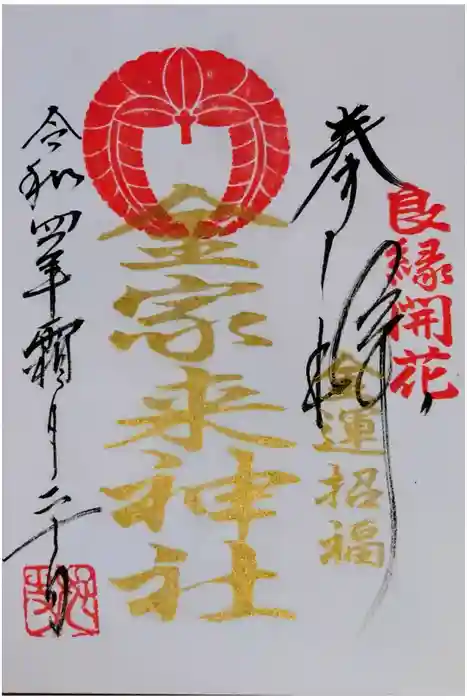 奉拝
良縁開花
金運招福
金家来神社
令和四年霜月二十日